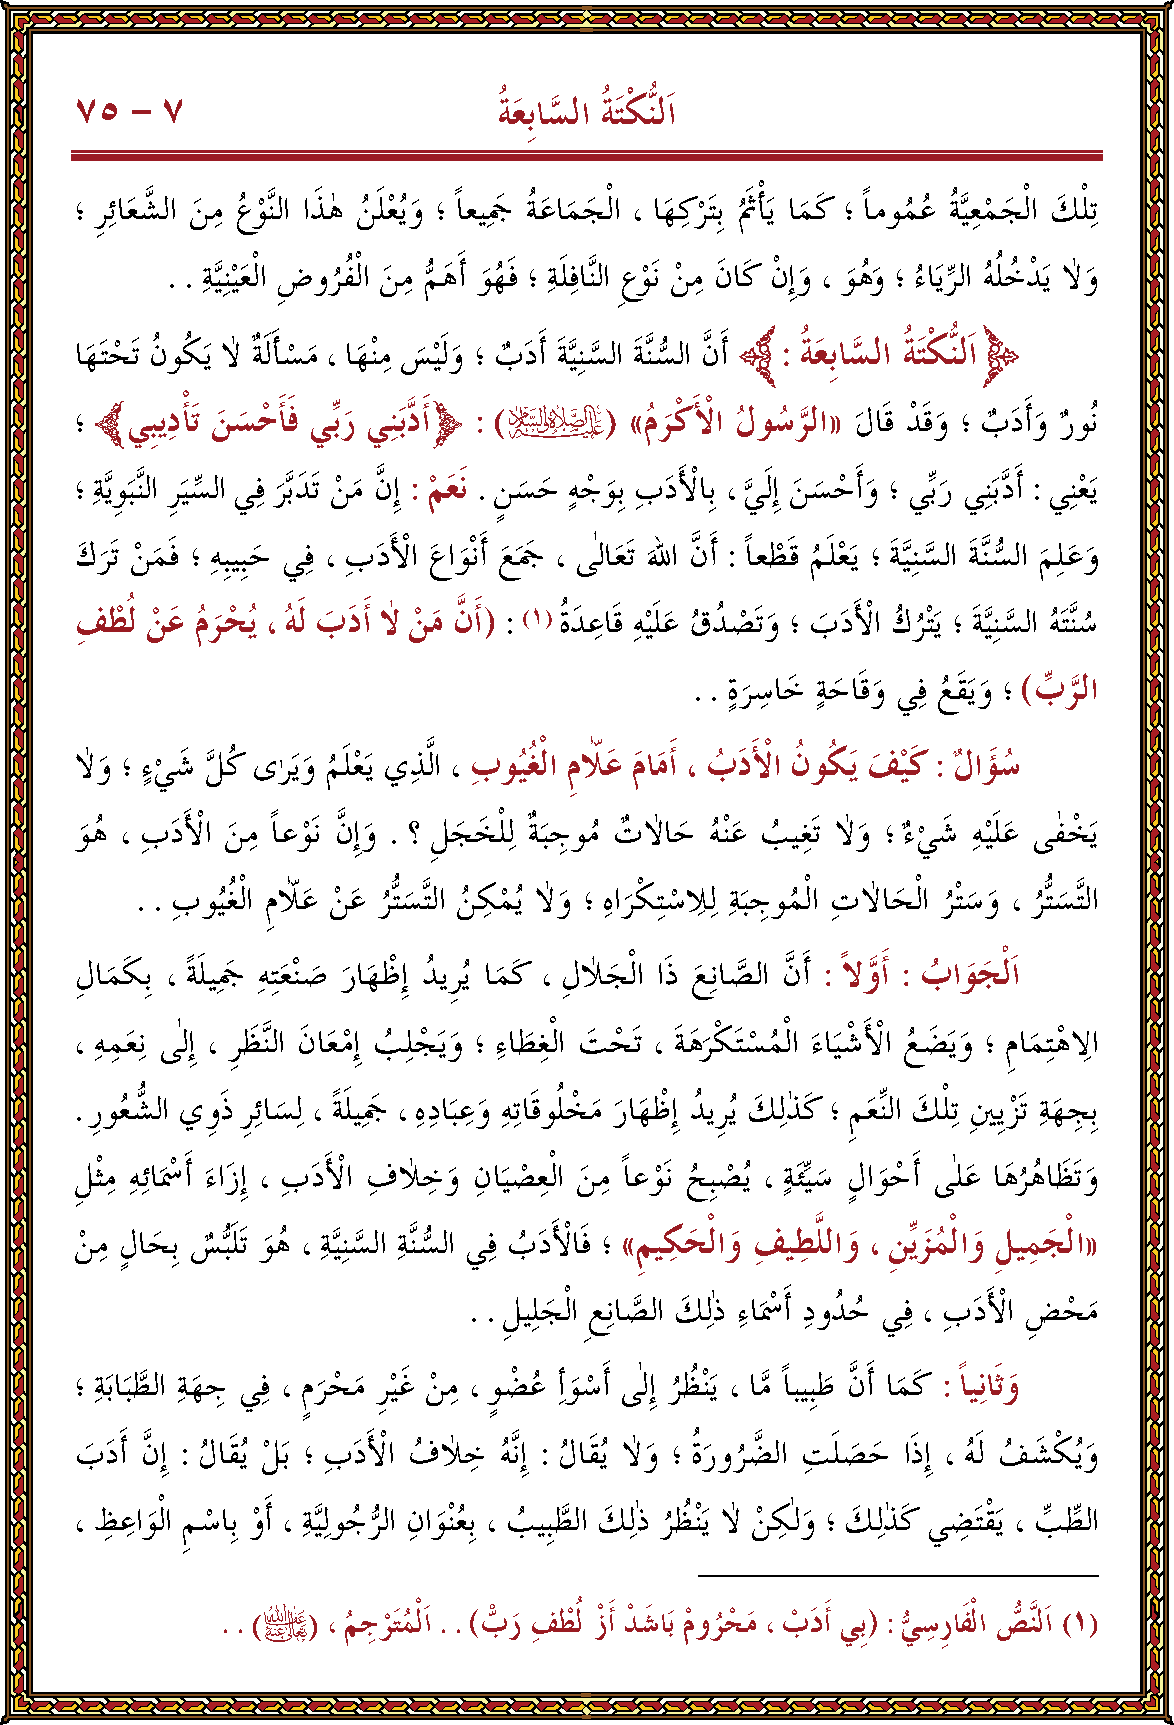 اَلنُّكْتَةُ السَّابِعَةُ
٧ - ٧٥
تِلْكَ الْجَمْعِيَّةُ عُمُوماً ؛ كَمَا يَأْثَمُ بِتَرْكِهَا ، الْجَمَاعَةُ جَمِيعاً ؛ وَيُعْلَنُ هٰذَا النَّوْعُ مِنَ الشَّعَائِرِ ؛
وَلَا يَدْخُلُهُ الرِّيَاءُ ؛ وَهُوَ ، وَإِنْ كَانَ مِنْ نَوْعِ النَّافِلَةِ ؛ فَهُوَ أَهَمُّ مِنَ الْفُرُوضِ الْعَيْنِيَّةِ . .
﴿اَلنُّكْتَةُ السَّابِعَةُ : ﴾ أَنَّ السُّنَّةَ السَّنِيَّةَ أَدَبٌ ؛ وَلَيْسَ مِنْهَا ، مَسْأَلَةٌ لَا يَكُونُ تَحْتَهَا
نُورٌ وَأَدَبٌ ؛ وَقَدْ قَالَ «الرَّسُولُ الْأَكْرَمُ» (عَلَيْهِ الصَّلَاةُ وَالسَّلَامُ) : ﴿أَدَّبَنِي رَبِّي فَأَحْسَنَ تَأْدِيبِي﴾ ؛
يَعْنِي : أَدَّبَنِي رَبِّي ؛ وَأَحْسَنَ إِلَيَّ ، بِالْأَدَبِ بِوَجْهٍ حَسَنٍ . نَعَمْ : إِنَّ مَنْ تَدَبَّرَ فِي السِّيَرِ النَّبَوِيَّةِ ؛
وَعَلِمَ السُّنَّةَ السَّنِيَّةَ ؛ يَعْلَمُ قَطْعاً : أَنَّ اللهَ تَعَالٰى ، جَمَعَ أَنْوَاعَ الْأَدَبِ ، فِي حَبِيبِهِ ؛ فَمَنْ تَرَكَ
سُنَّتَهُ السَّنِيَّةَ ؛ يَتْرُكُ الْأَدَبَ ؛ وَتَصْدُقُ عَلَيْهِ قَاعِدَةُ (١) : (أَنَّ مَنْ لَا أَدَبَ لَهُ ، يُحْرَمُ عَنْ لُطْفِ
الرَّبِّ) ؛ وَيَقَعُ فِي وَقَاحَةٍ خَاسِرَةٍ . .
سُؤَالٌ : كَيْفَ يَكُونُ الْأَدَبُ ، أَمَامَ عَلَّامِ الْغُيُوبِ ، الَّذِي يَعْلَمُ وَيَرٰى كُلَّ شَيْءٍ ؛ وَلَا
يَخْفٰى عَلَيْهِ شَيْءٌ ؛ وَلَا تَغِيبُ عَنْهُ حَالَاتٌ مُوجِبَةٌ لِلْخَجَلِ ؟ . وَإِنَّ نَوْعاً مِنَ الْأَدَبِ ، هُوَ
التَّسَتُّرُ ، وَسَتْرُ الْحَالَاتِ الْمُوجِبَةِ لِلِاسْتِكْرَاهِ ؛ وَلَا يُمْكِنُ التَّسَتُّرُ عَنْ عَلَّامِ الْغُيُوبِ . .
اَلْجَوَابُ : أَوَّلاً : أَنَّ الصَّانِعَ ذَا الْجَلَالِ ، كَمَا يُرِيدُ إِظْهَارَ صَنْعَتِهِ جَمِيلَةً ، بِكَمَالِ
الِاهْتِمَامِ ؛ وَيَضَعُ الْأَشْيَاءَ الْمُسْتَكْرَهَةَ ، تَحْتَ الْغِطَاءِ ؛ وَيَجْلِبُ إِمْعَانَ النَّظَرِ ، إِلٰى نِعَمِهِ ،
بِجِهَةِ تَزْيِينِ تِلْكَ النِّعَمِ ؛ كَذٰلِكَ يُرِيدُ إِظْهَارَ مَخْلُوقَاتِهِ وَعِبَادِهِ ، جَمِيلَةً ، لِسَائِرِ ذَوِي الشُّعُورِ .
وَتَظَاهُرُهَا عَلٰى أَحْوَالٍ سَيِّئَةٍ ، يُصْبِحُ نَوْعاً مِنَ الْعِصْيَانِ وَخِلَافِ الْأَدَبِ ، إِزَاءَ أَسْمَائِهِ مِثْلِ
«الْجَمِيلِ وَالْمُزَيِّنِ ، وَاللَّطِيفِ وَالْحَكِيمِ» ؛ فَالْأَدَبُ فِي السُّنَّةِ السَّنِيَّةِ ، هُوَ تَلَبُّسٌ بِحَالٍ مِنْ
مَحْضِ الْأَدَبِ ، فِي حُدُودِ أَسْمَاءِ ذٰلِكَ الصَّانِعِ الْجَلِيلِ . .
وَثَانِياً : كَمَا أَنَّ طَبِيباً مَّا ، يَنْظُرُ إِلٰى أَسْوَأِ عُضْوٍ ، مِنْ غَيْرِ مَحْرَمٍ ، فِي جِهَةِ الطَّبَابَةِ ؛
وَيُكْشَفُ لَهُ ، إِذَا حَصَلَتِ الضَّرُورَةُ ؛ وَلَا يُقَالُ : إِنَّهُ خِلَافُ الْأَدَبِ ؛ بَلْ يُقَالُ : إِنَّ أَدَبَ
الطِّبِّ ، يَقْتَضِي كَذٰلِكَ ؛ وَلٰكِنْ لَا يَنْظُرُ ذٰلِكَ الطَّبِيبُ ، بِعُنْوَانِ الرُّجُولِيَّةِ ، أَوْ بِاسْمِ الْوَاعِظِ ،
(١) اَلنَّصُّ الْفَارِسِيُّ : (بِي أَدَبْ ، مَحْرُومْ بَاشَدْ أَزْ لُطْفِ رَبّْ) . . اَلْمُتَرْجِمُ ، () . .